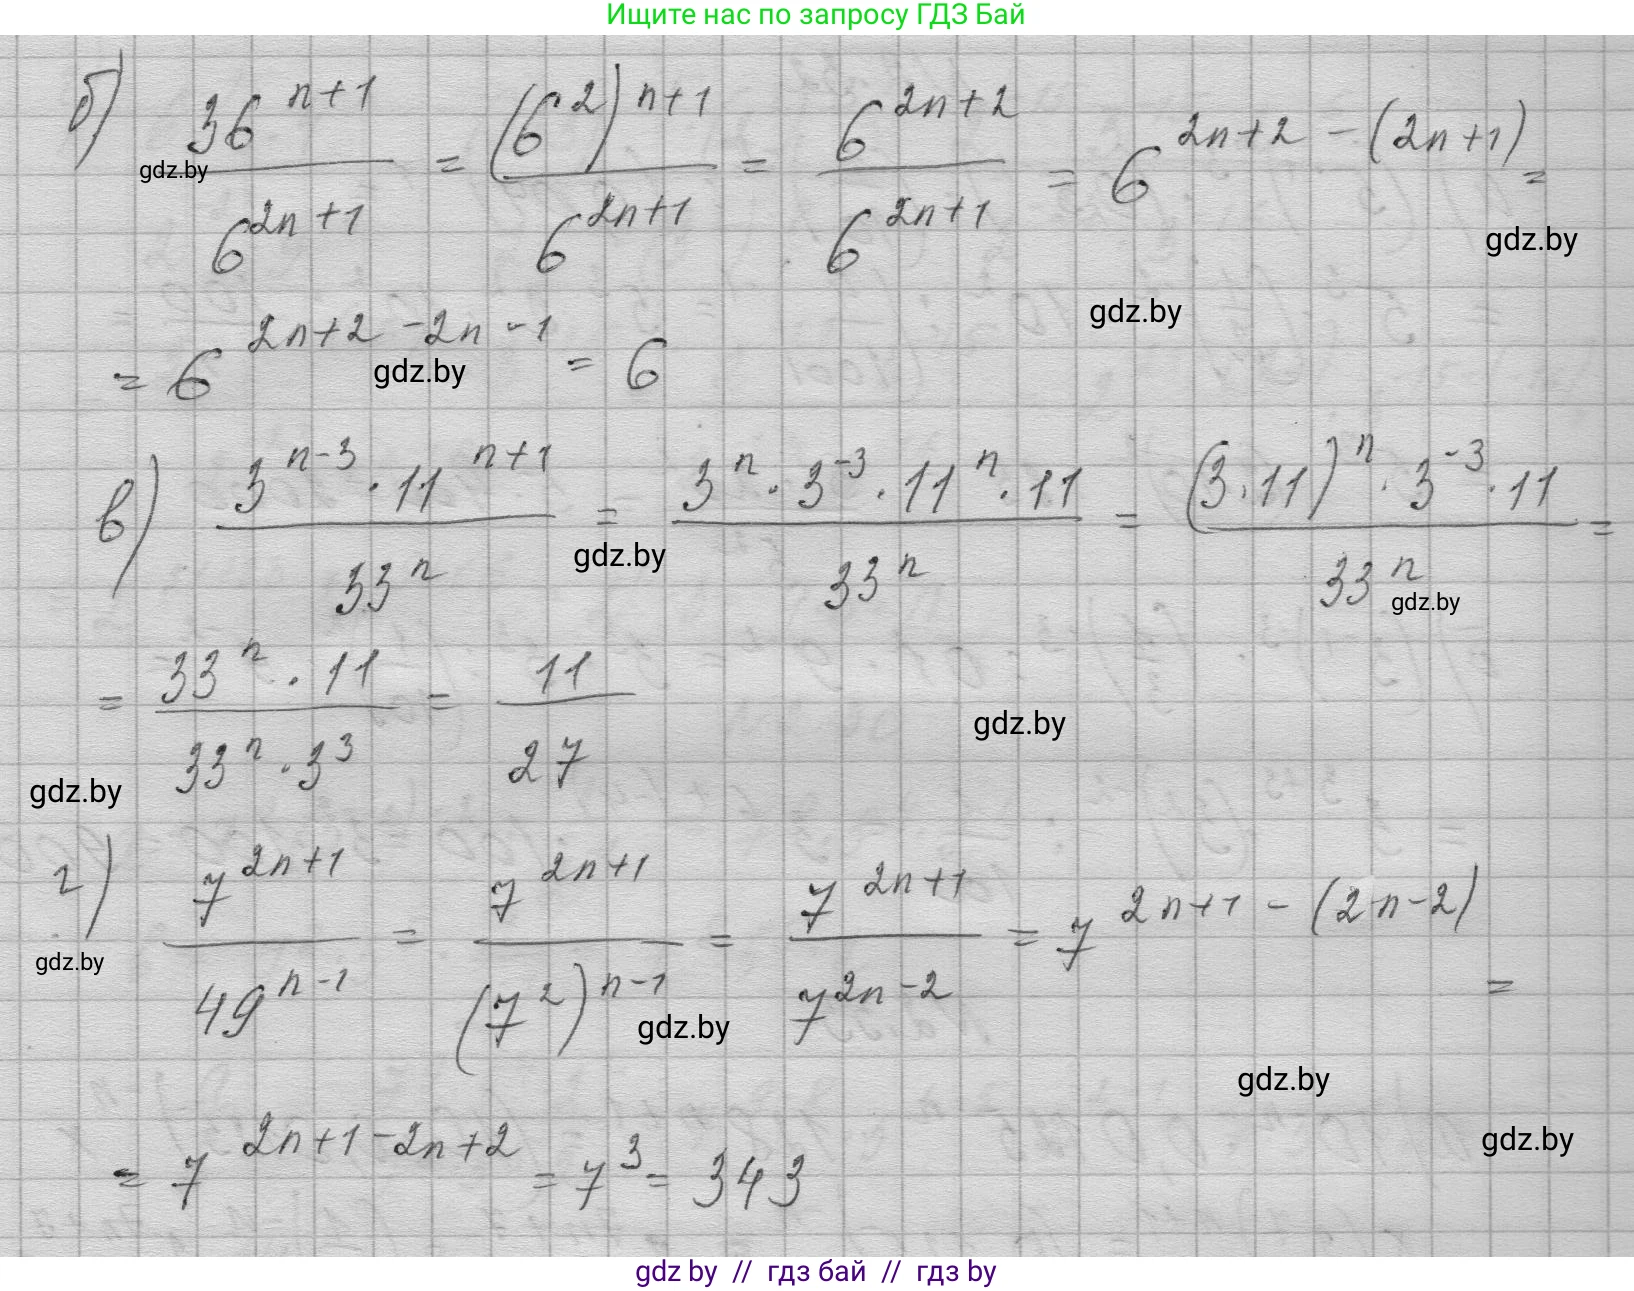 Ищите нас по запросу ГДЗ Бай
б) 36^(n+1) / 6^(2n+1) = (6^2)^(n+1) / 6^(2n+1) = 6^(2n+2) / 6^(2n+1) = 6^(2n+2-(2n+1)) =
gdz.by
gdz.by
gdz.by
= 6^(2n+2-2n-1) = 6
gdz.by
в) 3^(n-3) · 11^(n+1) / 33^n = 3^n · 3^(-3) · 11^n · 11 / 33^n = (3·11)^n · 3^(-3) · 11 / 33^n =
gdz.by
gdz.by
= 33^n · 11 / 33^n · 3^3 = 11 / 27
gdz.by
gdz.by
г) 7^(2n+1) / 49^(n-1) = 7^(2n+1) / (7^2)^(n-1) = 7^(2n+1) / 7^(2n-2) = 7^(2n+1-(2n-2)) =
gdz.by
gdz.by
gdz.by
gdz.by
= 7^(2n+1-2n+2) = 7^3 = 343
gdz by // гдз бай // гдз by